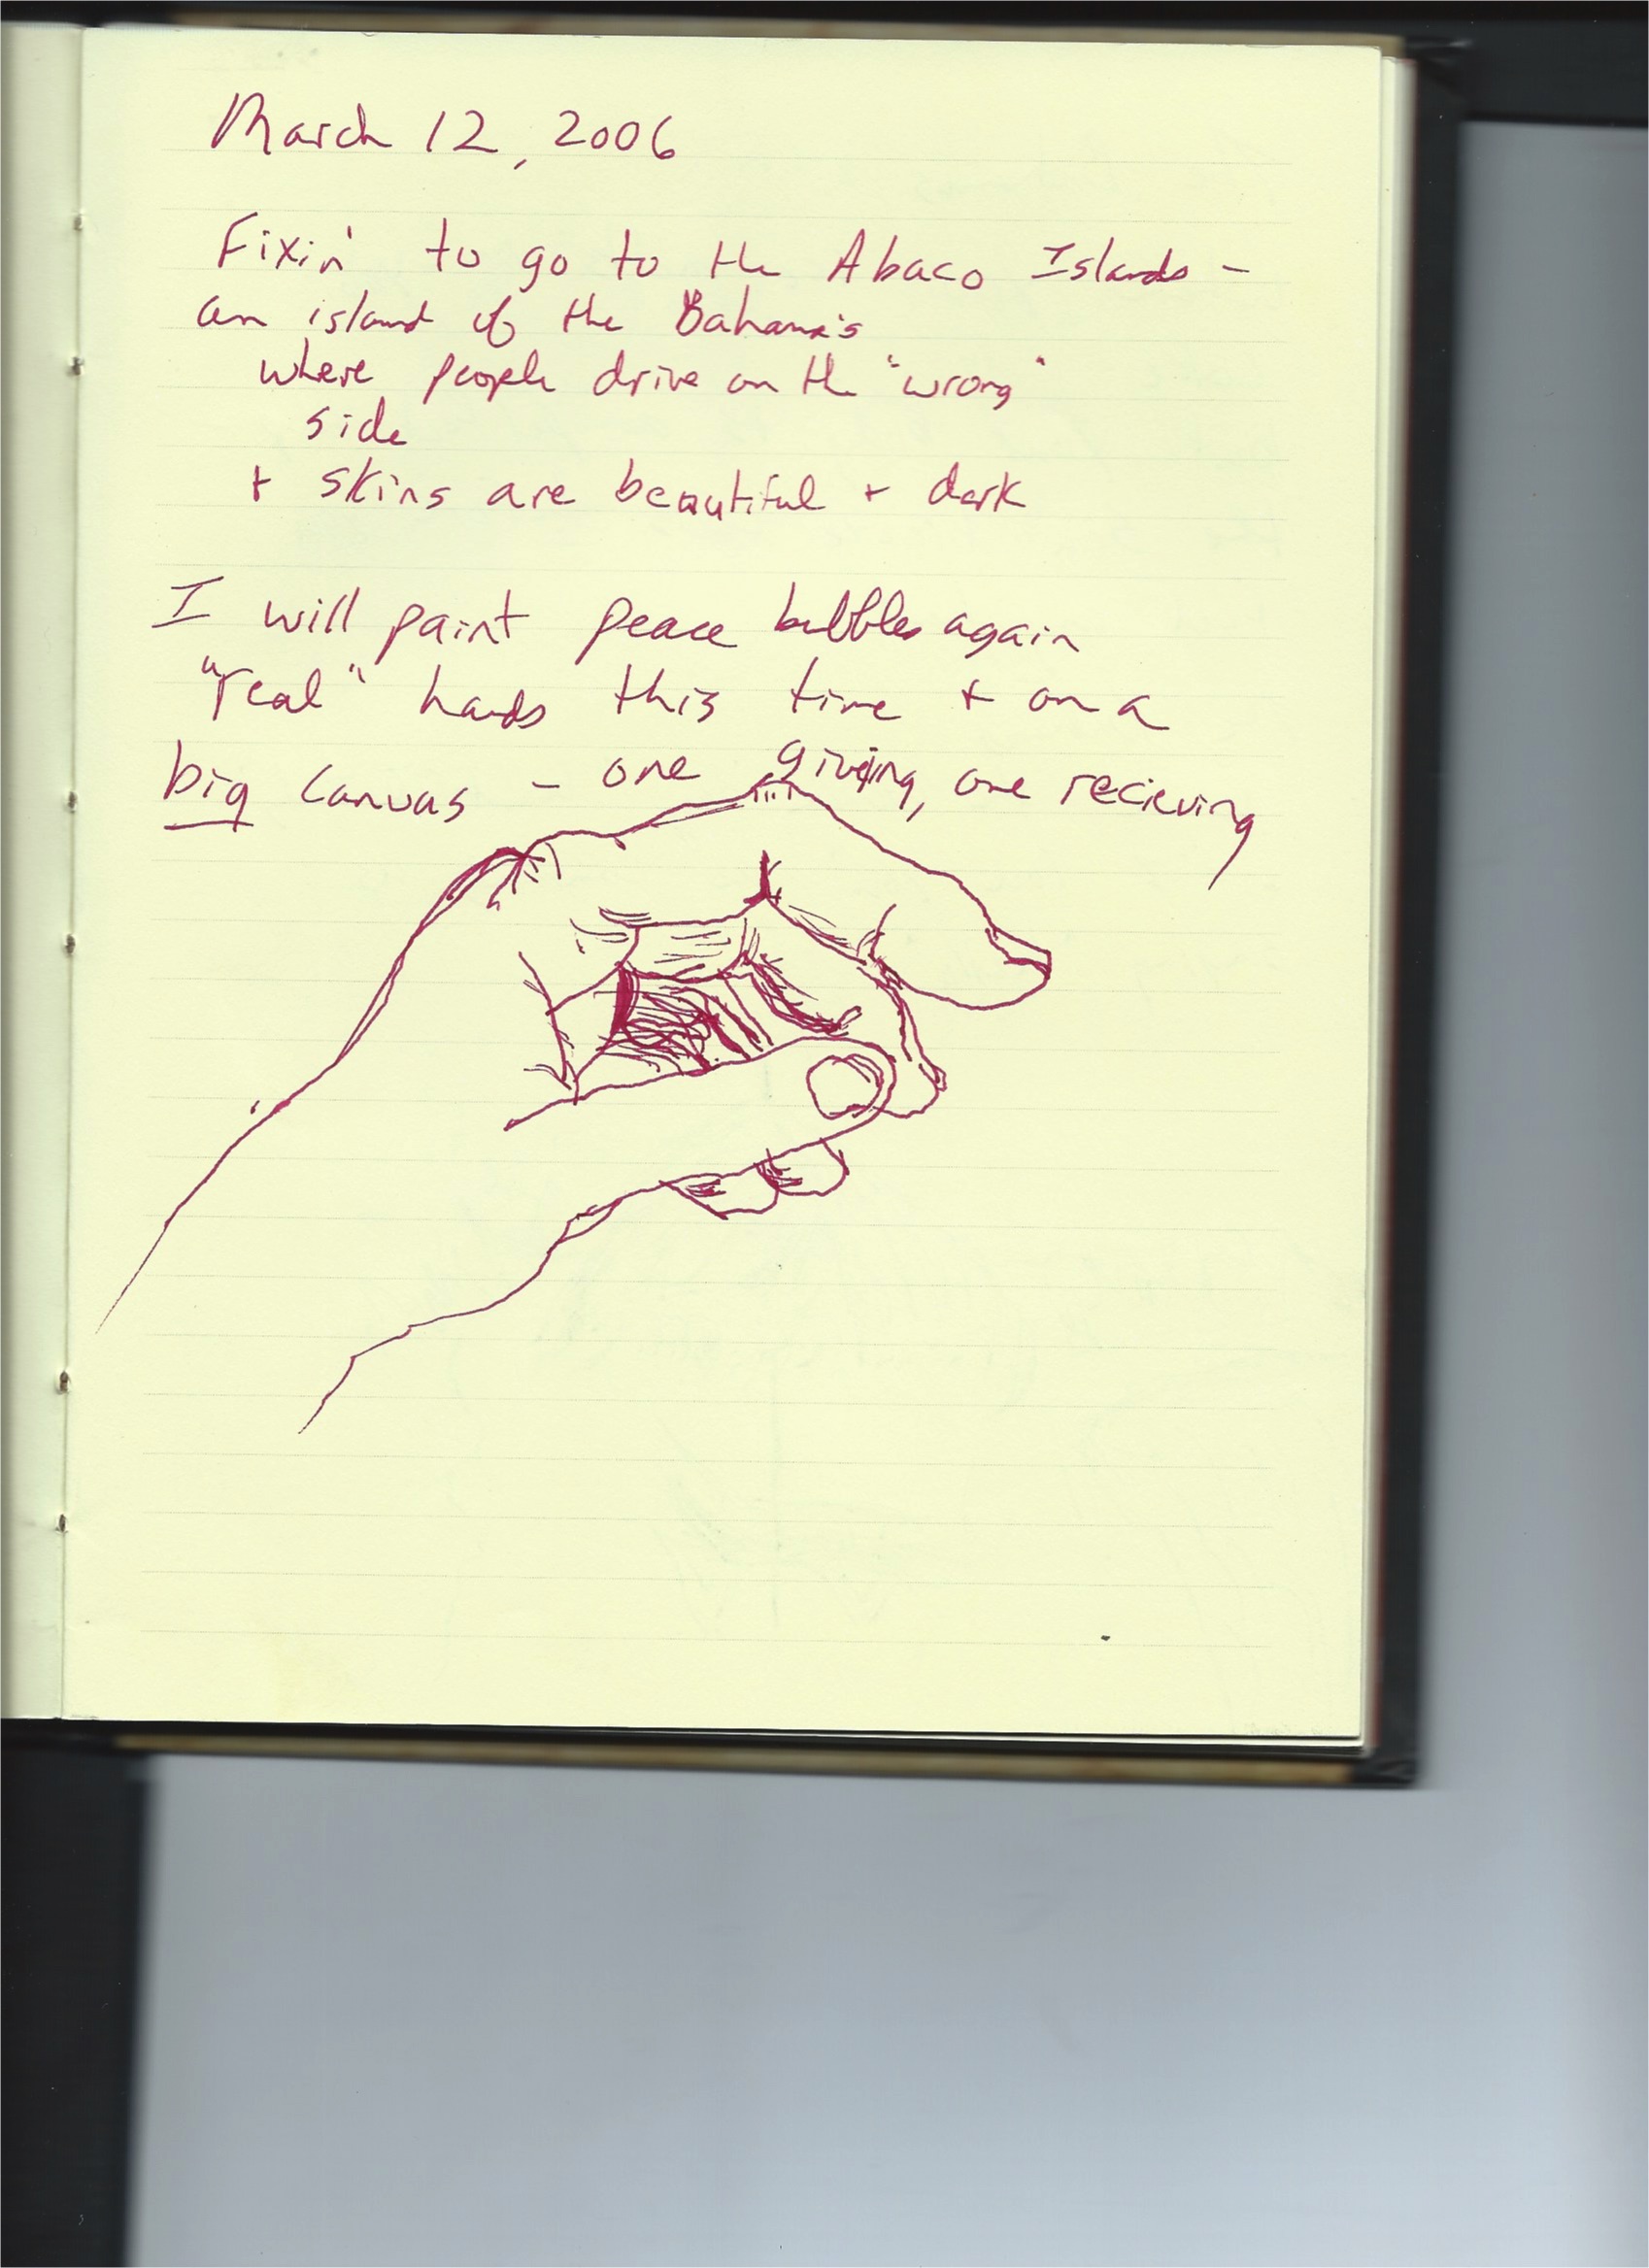 March 12, 2006
Fixin' to go to the Abaco Islands -
an island of the Bahama's
where people drive on the "wrong"
side
+ skins are beautiful + dark
I will paint peace bubbles again
"real" hands this time + on a
big canvas - one giving, one recieving